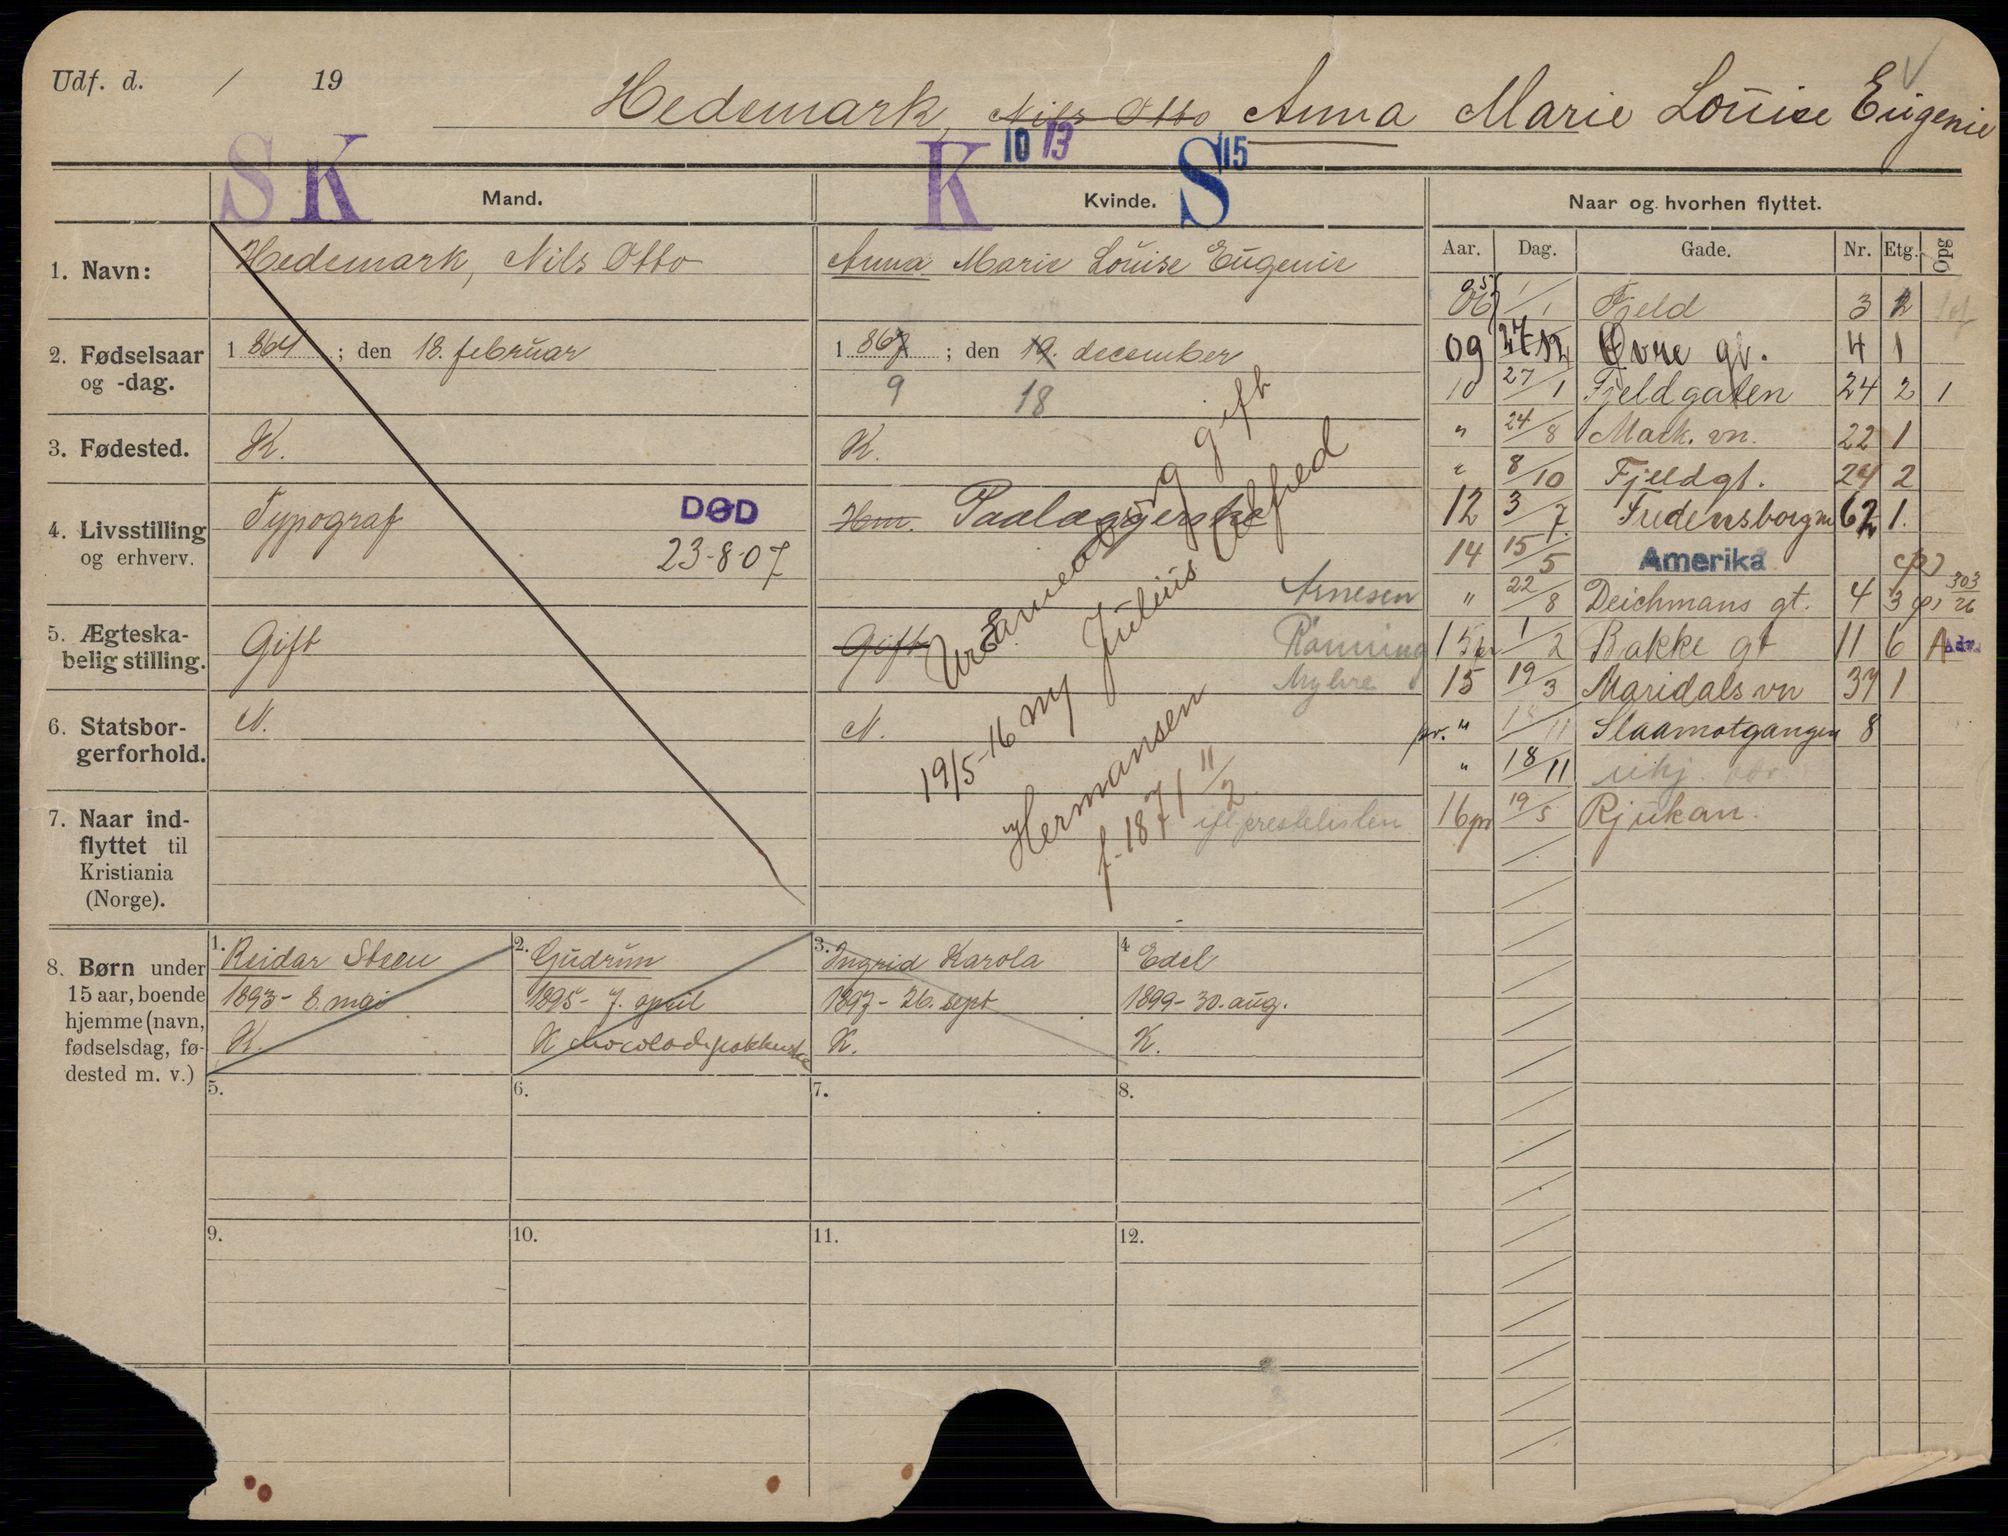 Udf. d. / 19
Hedemark, Nils Otto Anna Marie Louise Eugenie
S K K 10 13 S 15
Mand. Kvinde. Naar og hvorhen flyttet.
Aar. Dag. Gade. Nr. Etg. Opg
1. Navn: Hedemark, Nils Otto Anna Marie Louise Eugenie
2. Fødselsaar og -dag. 1 864 ; den 18. februar 1 867 ; den 19. december
9 18
3. Fødested. K. K.
4. Livsstilling og erhverv. Typograf Hm. Paalæggerske
DØD
23-8-07
5. Ægteskabelig stilling. Gift Gift
Arnesen
Rønning
Myhre
6. Statsborgerforhold. N. N.
7. Naar indflyttet til Kristiania (Norge).
Uranienborg gift
19/5-16 m/ Julius Alfred
Hermansen
f. 1871 11/2
ifl prestelisten
06 1/1 Fjeld 3 2
09 27/12 Øvre gt. 4 1
10 27/1 Fjeldgaten 24 2 1
" 24/8 Mark. vn. 22 1
" 8/10 Fjeldgt. 24 2
12 3/7 Fredensborgvn 62 1.
14 15/5 Amerika
" 22/8 Deichmans gt. 4 3 303/26
15 pr 1/2 Bakke gt 11 6 A Adr.
15 19/3 Maridals vn 37 1
pr. " 18/11 Slaamotgangen 8
" 18/11
16 pr 19/5 Rjukan.
8. Børn under 15 aar, boende hjemme (navn, fødselsdag, fødested m. v.)
1. Reidar Steen
1893 - 8. mai
K.
2. Gudrun
1895 - 7. april
K chocoladepakkerske
3. Ingrid Karola
1897 - 26. sept
K.
4 Edel
1899 - 30. aug.
K.
5. 6. 7. 8.
9. 10. 11. 12.